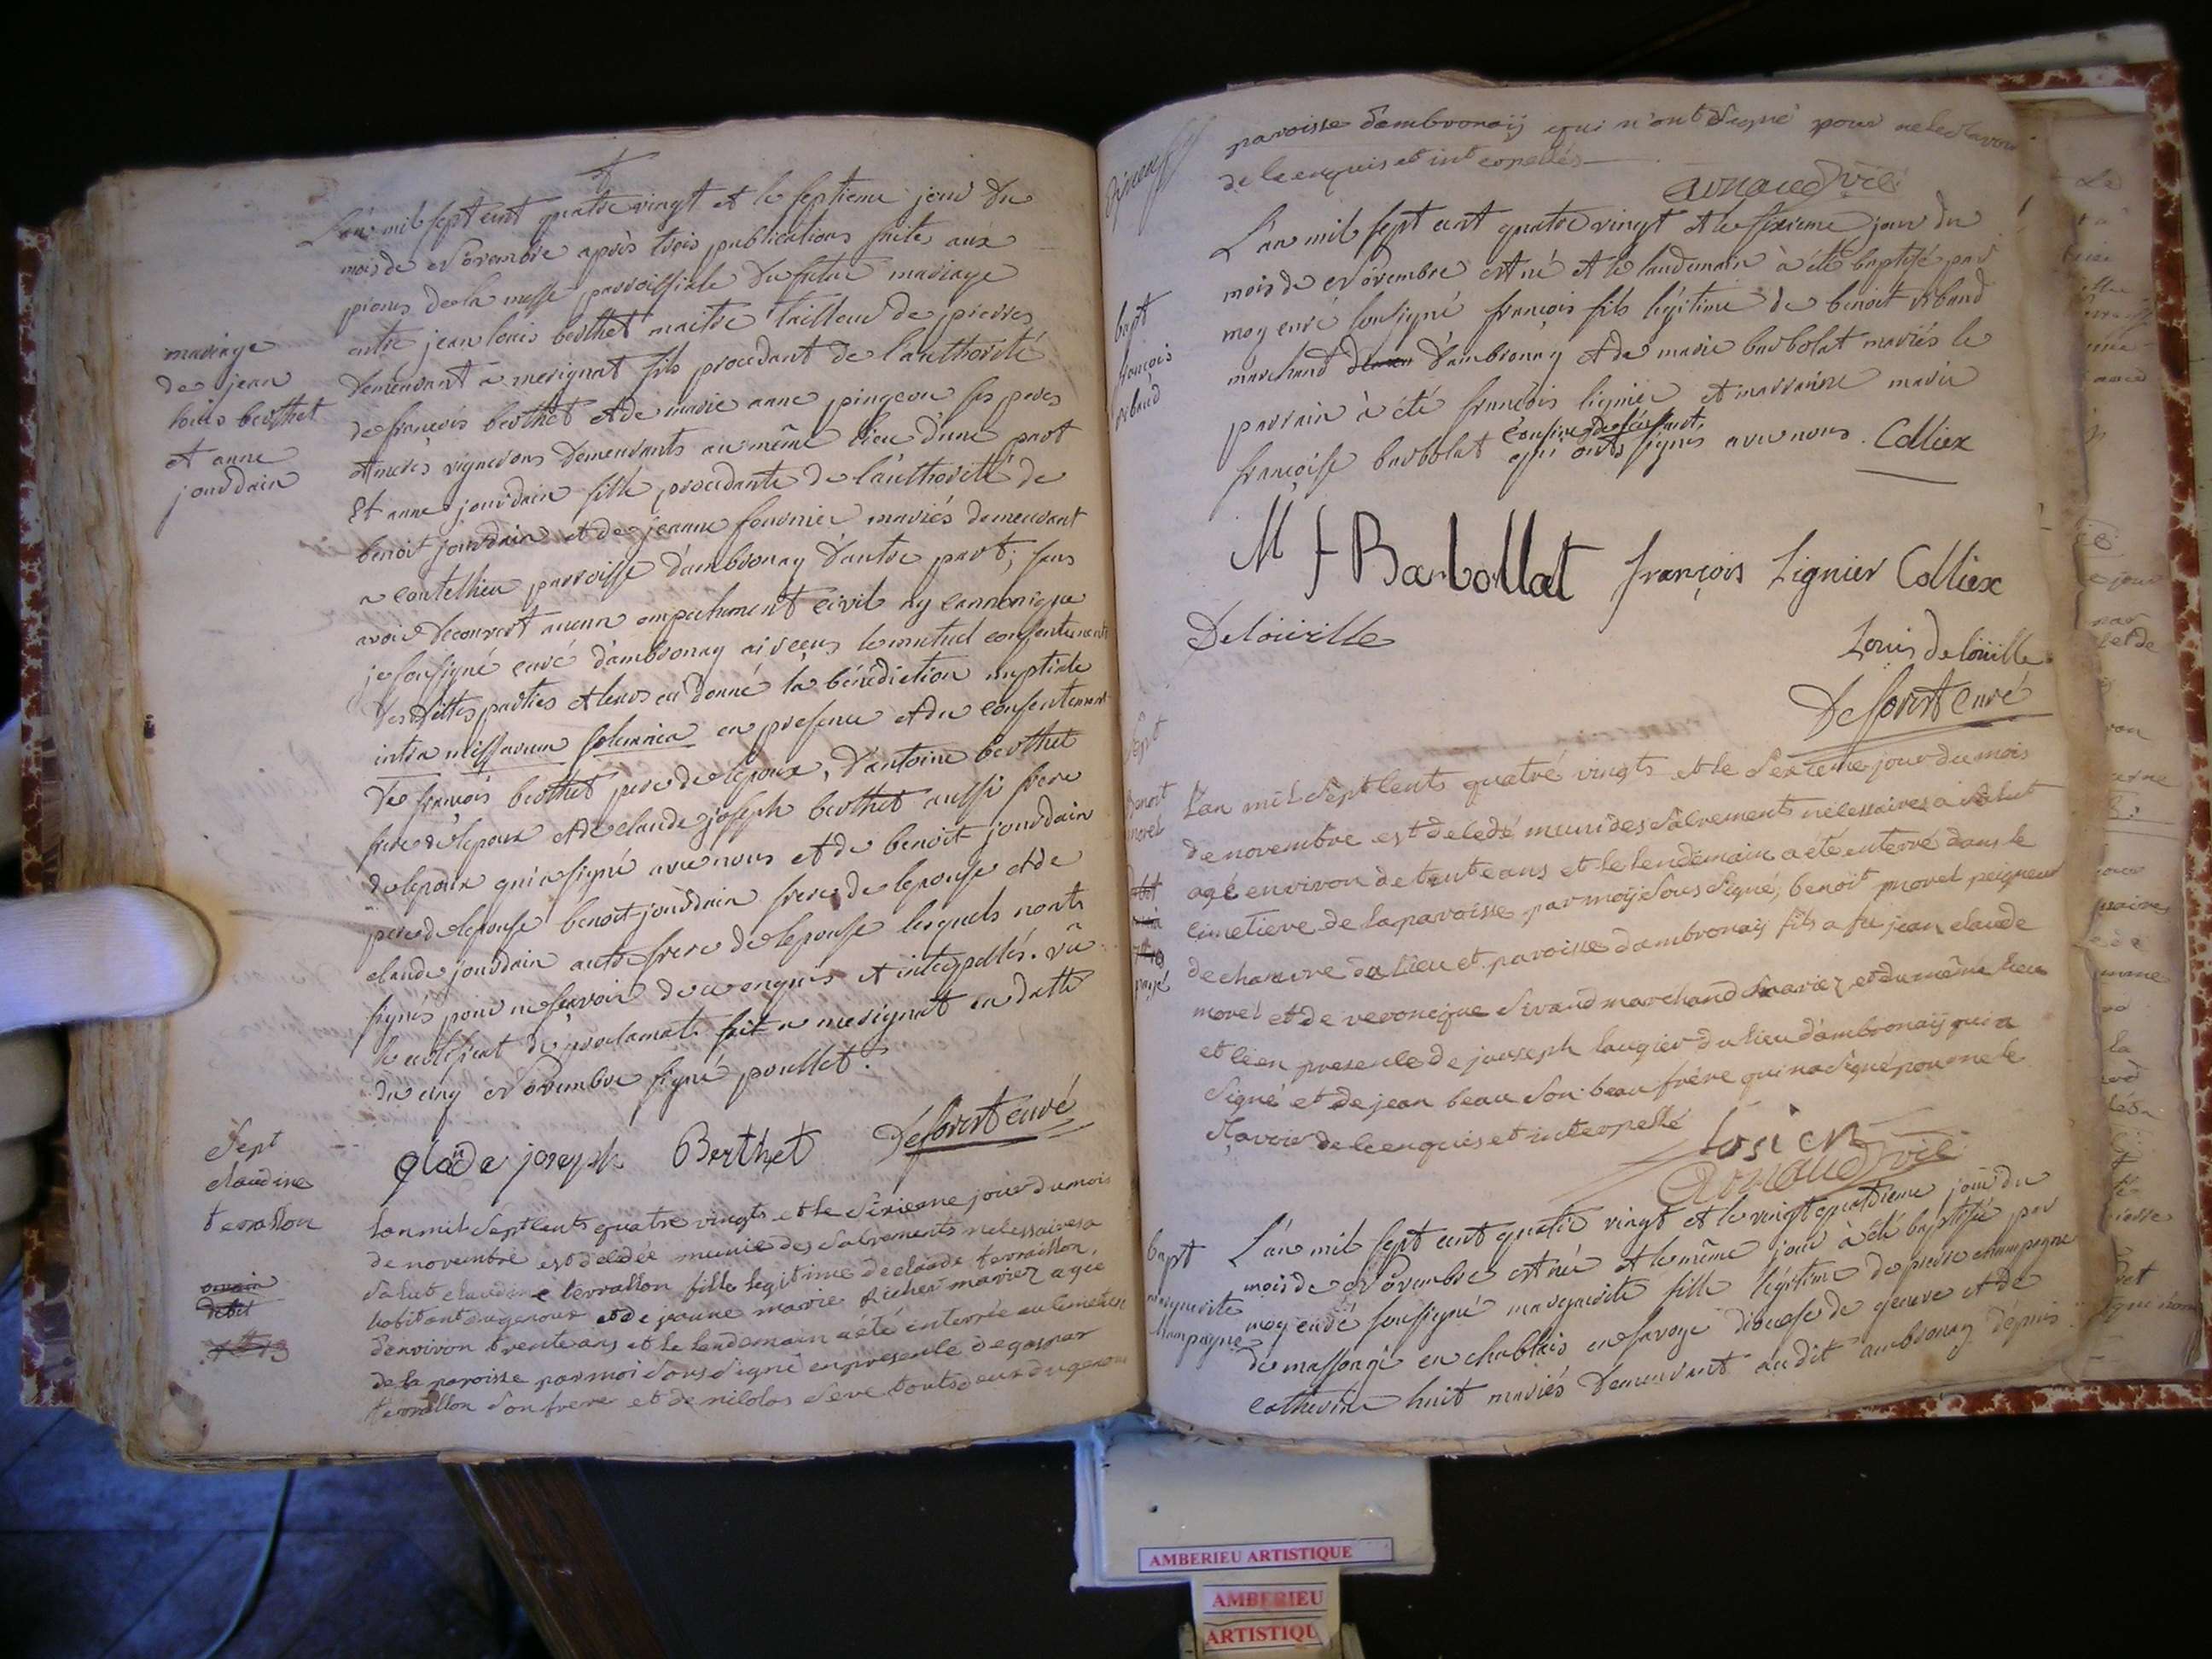 L'an mil sept cent quatre vingt et le septieme jour du
mois de Novembre après trois publications faites aux
prones de la messe parroissiale du futur mariage
entre jean louis berthet maitre tailleur de pierres
demeurant a merignat fils procedant de l'authorité
de françois berthet et de marie anne pingeon ses peres
et meres vignerons demeurants au même lieu d'une part
et anne jourdain fille procedante de l'authorité de
benoit jourdain et de jeanne fournier mariés demeurant
a cantelhieu parroisse d'ambronay d'autre part; sans
avoir decouvert aucun empechement civil ny cannonique
je soussigné curé d'ambronay ai reçeus le mutuel consentement
des dittes parties et leurs ai donné la bénédiction nuptiale
intra missarum solemnia en presence et du consentement
de françois berthet pere de lepoux, d'antoine berthet
frere de lepoux et de claude joseph berthet aussi frere
de lepoux qui a signé avec nous et de benoit jourdain
pere de lepouse benoit jourdain frere de lepouse et de
claude jourdain autre frere de lepouse lesquels nonts
signés pour ne sçavoir de ce enquis et interpellés. vû
le certificat de proclamat. fait a merignat en datte
du cinq Novembre signé poullet.
mariage
de jean
louis berthet
et anne
jourdain
glaude joseph Berthet Desforest curé
Sept
claudine
terrallon
Lan mil Sept cents quatre vingts et le Sixieme jour du mois
de novembre est décédée munie des Sacrements necessaires a
Salut claudine terrallon fille legitime de claude terraillon,
habitant dugenoux et de jeanne marie Richer mariez agée
d'environ trente ans et le lendemain a été enterrée au cimetiere
de la paroisse par moi Sous Signé en presence de gaspar
terrallon Son frere et de nicolas Seve touts deux dugenoux
paroisse dambronaÿ qui n'ont Signé pour ne le Savoir
de ce enquis et interpellés
arnaud vic:
L'an mil sept cent quatre vingt et le sixieme jour du
mois de Novembre est né et le landemain à été baptisé par
moy curé soussigné françois fils légitime de benoit riband
marchand d'ambronay et de marie barbolat mariés le
parrain à été françois lignier et marrainne marie
françoise barbolat cousine qui onts signés avec nous. Colliex
bapt
françois
riband
M f Barbollat françois Lignier Colliex
Deloüille
Louis deloüille
Desforest curé
Sept
Benoit
morel
L'an mil Sept Cents quatre vingts et le Sixieme jour du mois
de novembre est decedé muni des Sacrements necessaires a Salut
agé environ de trente ans et le lendemain a été enterré dans le
cimetiere de la paroisse par moy Sous Signé, benoit morel peigneur
de chanvre du Lieu et paroisse dambronaÿ fils a fu jean claude
morel et de veronique Sivand marchand mariez et du même lieu
et ce en presence de jouseph laugier du lieu dambronaÿ qui a
Signé et de jean beau Son beau frére qui na Signé pour ne le
Savoir de ce enquis et interpellé
losier
arnaud vic:
bapt
marguerite
champagne
L'an mil sept cent quatre vingt et le vingt quatrieme jour du
mois de Novembre est née et le même jour à été baptisée par
moy curé soussigné marguerite fille légitime de pierre champagne
de massongi en chablais en savoye diocese de geneve et de
catherine huit mariés demeurant audit ambronay depuis
AMBERIEU ARTISTIQUE
AMBERIEU
ARTISTIQU